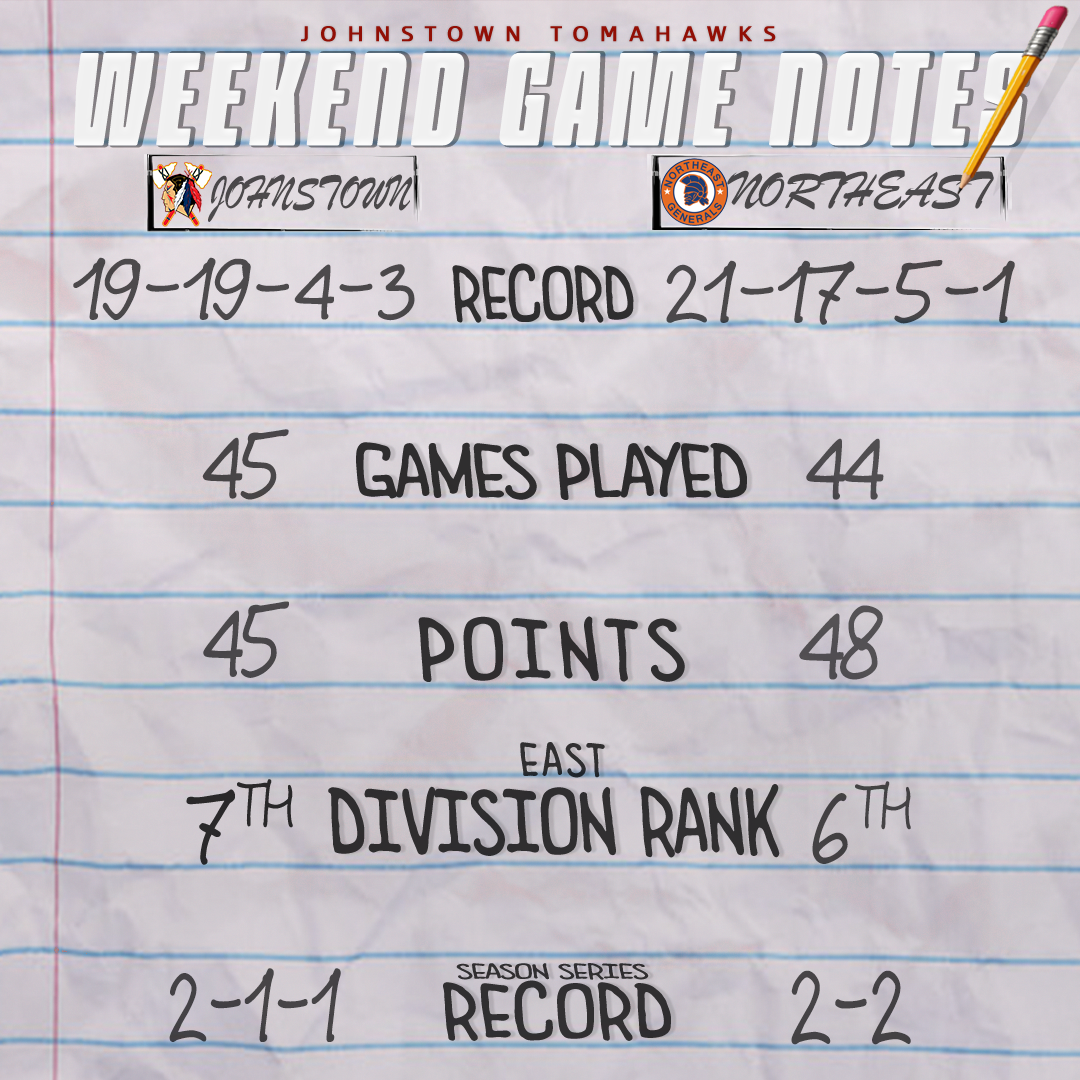 JOHNSTOWN TOMAHAWKS
WEEKEND GAME NOTES
JOHNSTOWN
NORTHEAST GENERALS
NORTHEAST
19-19-4-3 RECORD 21-17-5-1
45 GAMES PLAYED 44
45 POINTS 48
EAST
7TH DIVISION RANK 6TH
SEASON SERIES
2-1-1 RECORD 2-2